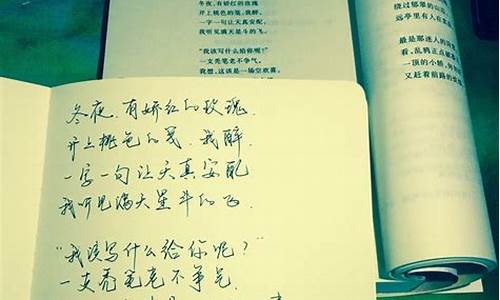 冬夜,有娇红的玫瑰
开上桃色的笺,我醉,
一字一句让天真安配,
我听见满天星斗的飞。
“我该写什么给你呢?”
一支秃笔老不争气。
我想,这该是一场空欢喜,
绕过郁翠的山
远亭里有人在
最是那迷人的
看,乱鸦正点破
一顶的小轿,
又赶着前路的
冬夜,有娇红的玫瑰,
开上桃色的笺.我醉.
一字一句让天真安配
我听见满天星斗的飞.
“我该写什么给你呢?”
一支秃笔老不争气.